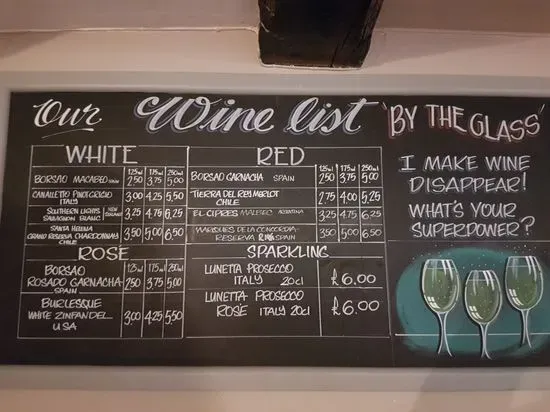 Our Wine list "BY THE GLASS"
WHITE
125ml 175ml 250ml
BORSAO MACABEO 2.50 3.75 5.00
CANALLETTO PINOT GRIGIO ITALY 3.00 4.25 5.50
SOUTHERN LIGHTS SAUVIGNON BLANC NEW ZEALAND 3.25 4.75 6.25
SANTA HELENA GRAN RESERVA CHARDONNAY CHILE 3.50 5.00 6.50
ROSE
125ml 175ml 250ml
BORSAO ROSADO GARNACHA SPAIN 2.50 3.75 5.00
BURLESQUE WHITE ZINFANDEL USA 3.00 4.25 5.50
RED
125ml 175ml 250ml
BORSAO GARNACHA SPAIN 2.50 3.75 5.00
TIERRA DEL REY MERLOT CHILE 2.75 4.00 5.25
EL CIPRES MALBEC ARGENTINA 3.25 4.75 6.25
MARQUES DE LA CONCORDIA RESERVA SPAIN 3.50 5.00 6.50
SPARKLING
LUNETTA PROSECCO ITALY 20cl £6.00
LUNETTA PROSECCO ROSE ITALY 20cl £6.00
I MAKE WINE
DISAPPEAR!
WHAT'S YOUR
SUPERPOWER?